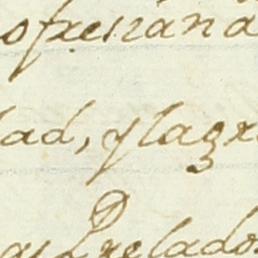 ofresiana
dad, y lagr
as Prelados